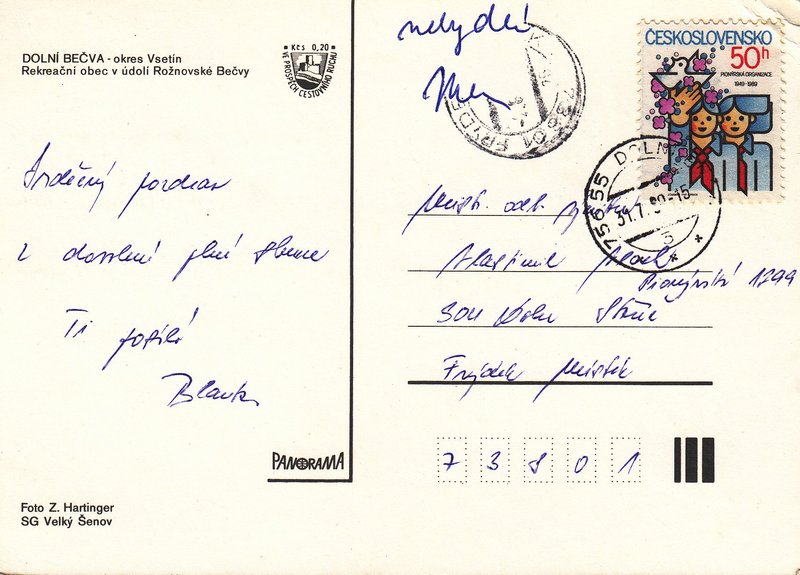 DOLNÍ BEČVA - okres Vsetín
Rekreační obec v údolí Rožnovské Bečvy
Kčs 0,20
VE PROSPĚCH CESTOVNÍHO RUCHU
Srdečný pozdrav
z dovolené plné slunce
Ti posílá
Blanka
PANORAMA
Foto Z. Hartinger
SG Velký Šenov
ČESKOSLOVENSKO
50h
PIONÝRSKÁ ORGANIZACE
1949-1989
738 01 FRÝDE
756 55 DOLNÍ
31.7.89-15
3
Místr. odb.
Vlastimil
Pionýrská 1799
Frýdek Místek
73801